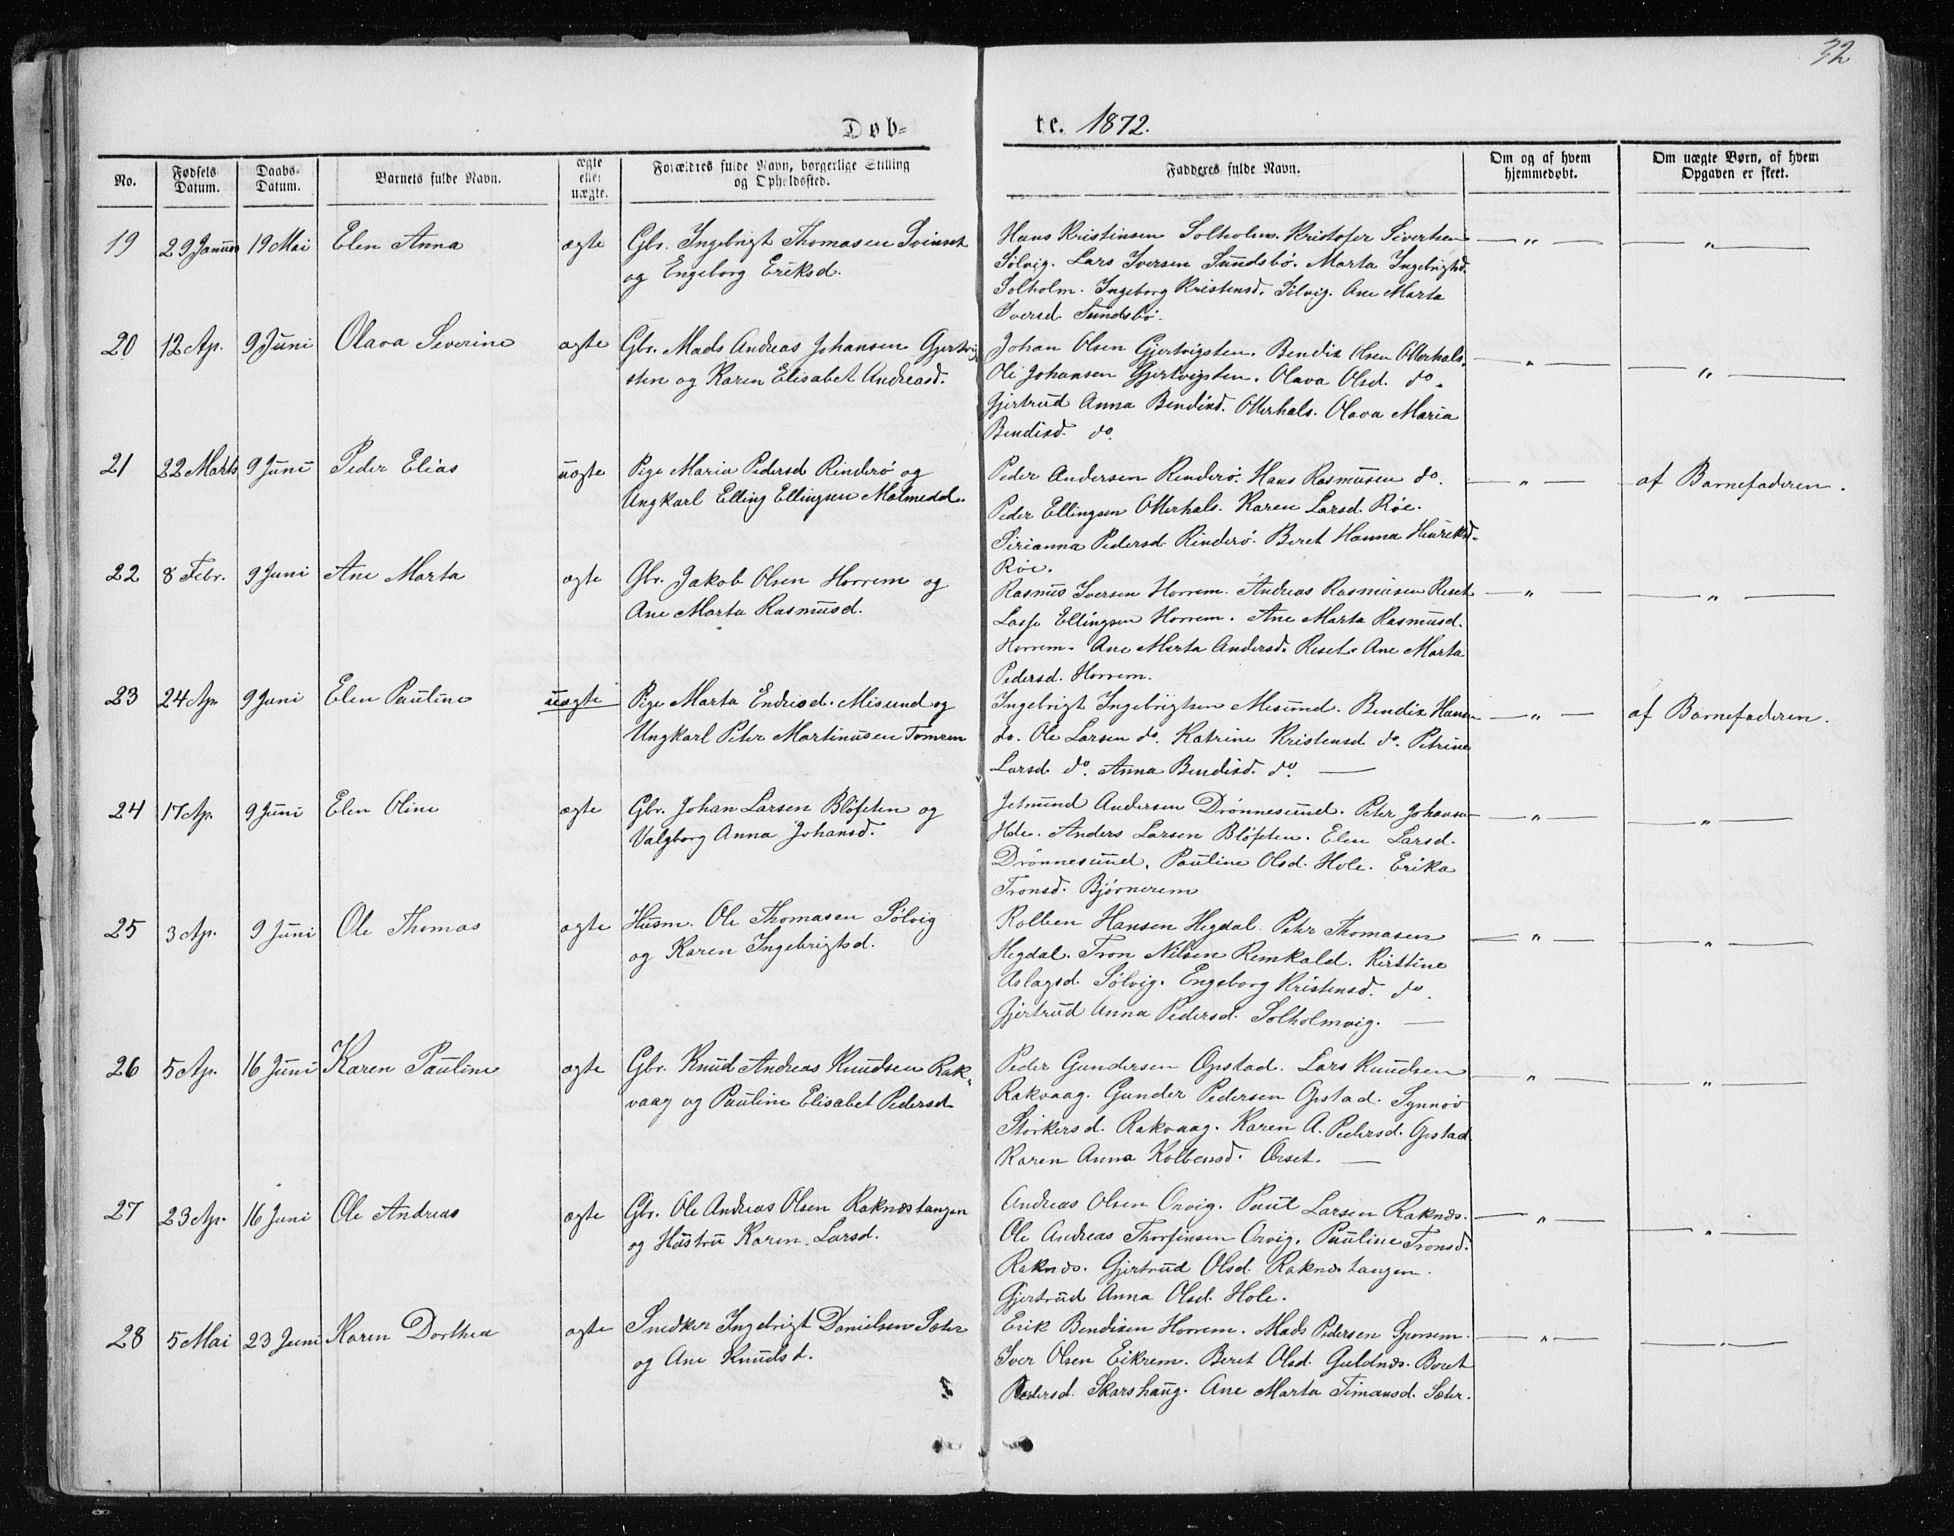 32
Døb=
te. 1872.
No.
Fødsels Datum.
Daabs-Datum.
Barnets fulde Navn.
ægte eller uægte.
Forældres fulde Navn, borgerlige Stilling og Opholdssted.
Fadderes fulde Navn.
Om og af hvem hjemmedøbt.
Om uægte Børn, af hvem Opgaven er skeet.
19 29 Januar 19 Mai Elen Anna ægte
Gbr. Ingebrigt Thomasen Svinset
og Engeborg Eriksd.
Hans Kristensen Solholm. Kristofer Sivertsen — " — — " —
Sølvig. Lars Iversen Sundsbö. Marta Ingebrigtsd.
Solholm. Ingeborg Kristensd. Sölvig. Ane Marta
Iversd. Sundsbö.
20 12 Ap. 9 Juni Olava Severine ægte
Gbr. Mads Andreas Johansen Gjertvig
sten og Karen Elisabet Andreasd.
Johan Olsen Gjertvigsten. Bendix Olsen Otterhals. — " — — " —
Oli Johansen Gjertvigsten. Olava Olsd. do.
Gjertrud Anna Bendixd. Otterhals. Olava Maria
Bendixd. do.
21 22 Marts 9 Juni Peder Elias uægte
Pige Maria Pedersd Rinderö og
Ungkarl Elling Ellingsen Malmedal.
Peder Andersen Rinderö. Hans Rasmusen do. — " — af Barnefaderen.
Peder Ellingsen Otterhals. Karen Larsd. Röe.
Sirianna Pedersd Rinderö. Beret Hanna Henriksd.
Röe.
22 8 Febr. 9 Juni Ane Marta ægte
Gbr. Jakob Olsen Horrem og
Ane Marta Rasmusd.
Rasmus Iversen Horrem. Andreas Rasmusen Reset — " — — " —
Lasse Ellingsen Horrem. Ane Marta Rasmusd.
Horrem. Ane Marta Andersd. Reset. Ane Marta
Pedersd. Horrem.
23 24 Ap. 9 Juni Elen Pauline uægte
Pige Marta Endresd. Misund og
Ungkarl Peter Martinusen Tomren
Ingebrigt Ingebrigtsen Misund. Bendix Hansen — " — af Barnefaderen.
do. Ole Larsen do. Katrine Kristensd do. Petrine
Larsd. do. Anna Bendixd. do. —
24 17 Ap. 9 Juni Elen Oline ægte
Gbr. Johan Larsen Blöseten og
Valgborg Anna Johansd.
Jetmund Andersen Drönnesund. Peter Johansen — " — — " —
Hole. Anders Larsen Blöseten. Elen Larsd.
Drönnesund. Pauline Olsd. Hole. Erika
Tronsd. Bjørnerem
25 3 Ap. 9 Juni Ole Thomas ægte
Husm. Ole Thomasen Sölvig
og Karen Ingebrigtsd.
Kolben Hansen Hegdal. Peter Thomasen — " — — " —
Hegdal. Tron Nilsen Remkald. Kirstine
Aslagsd. Sölvig. Engeborg Kristensd. do.
Gjertrud Anna Pedersd. Solholmvig. —
26 5 Ap. 16 Juni Karen Pauline ægte
Gbr. Knud Andreas Knudsen Rak-
vaag og Pauline Elisabet Pedersd
Peder Gundersen Opstad. Lars Knudsen — " — — " —
Rakvaag. Gunder Pedersen Opstad. Synnöv
Störkersd. Rakvaag. Karen A. Pedersd. Opstad
Karen Anna Kolbensd. Orset. —
27 23 Ap. 16 Juni Ole Andreas ægte
Gbr. Ole Andreas Olsen Raknestangen
og Hustru Karen Larsd.
Andreas Olsen Orvig. Paul Larsen Raknes. — " — — " —
Ole Andreas Thorfinsen Orvig. Pauline Tronsd.
Raknes. Gjertrud Olsd. Raknestangen.
Gjertrud Anna Olsd. Hole.
28 5 Mai 23 Juni Karen Dorthea ægte
Snedker Ingebrigt Danielsen Sæter
og Ane Knudsd.
Erik Bendixen Horrem. Mads Pedersen Sporsem. — " — — " —
Iver Olsen Eikrem. Beret Olsd. Guldnes. Beret
Pedersd. Skarshaug. Ane Marta Timansd. Sæter.